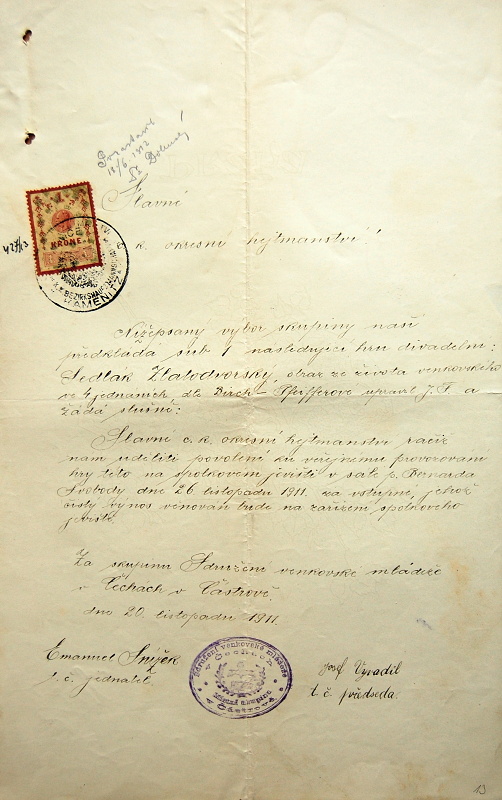 Slavné
c. k. okresní hejtmanství!
1 KRONE
K.K. BEZIRKSHAUPTMANNSCHAFT
KAMENITZ
Nížepsaný výbor skupiny naší
předkládá sub 1 následující hru divadelní:
Sedlák Zlatodvorský, obraz ze života venkovského
ve 4 jednáních, dle Birch-Pfeifferové upravil J. F. a
žádá slušně:
Slavné c. k. okresní hejtmanství račiž
nám uděliti povolení ku veřejnému provozování
hry této na spolkovém jevišti v sále p. Bernarda
Svobody dne 26. listopadu 1911. za vstupné, jehož
čistý výnos věnován bude na zařízení spolkového
jeviště.
Za skupinu Sdružení venkovské mládeže
v Čechách v Částrově
dne 20. listopadu 1911.
Emanuel
t. č. jednatel
Sdružení venkovské mládeže
v Čechách
Místní skupina
Částrově
Josef Vyvadil
t. č. předseda.
13